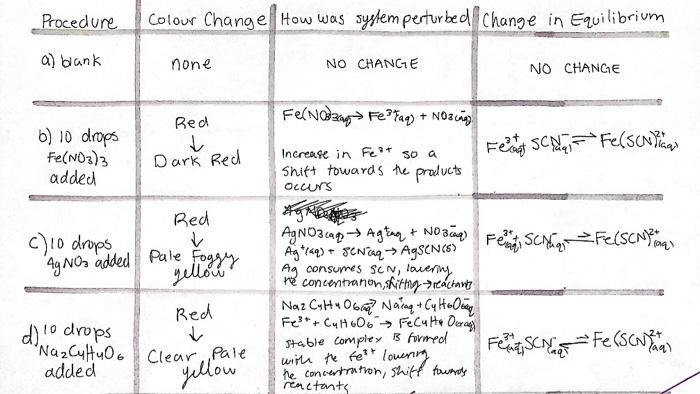 Procedure
Colour Change
How was system perturbed
Change in Equilibrium
a) blank
none
NO CHANGE
NO CHANGE
b) 10 drops
Fe(NO3)3
added
Red
↓
Dark Red
Fe(NO3)3(aq) → Fe³⁺(aq) + NO3⁻(aq)
Increase in Fe³⁺ so a
shift towards the products
occurs
Fe³⁺(aq) SCN⁻(aq) ⇌ Fe(SCN)²⁺(aq)
c) 10 drops
AgNO3 added
Red
↓
Pale Foggy
yellow
AgNO3(aq) → Ag⁺aq + NO3⁻aq)
Ag⁺(aq) + SCN⁻aq → AgSCN(s)
Ag consumes SCN, lowering
the concentration, shifting → reactants
Fe³⁺(aq) + SCN⁻(aq) ⇌ Fe(SCN)²⁺(aq)
d) 10 drops
Na2C4H4O6
added
Red
↓
Clear Pale
yellow
Na2C4H4O6(aq) → Na⁺aq + C4H6O6⁻aq
Fe³⁺ + C4H6O6⁻ → FeC4H4O6(aq)
stable complex is formed
with the Fe³⁺ lowering
the concentration, shift towards
reactants
Fe³⁺(aq) + SCN⁻(aq) ⇌ Fe(SCN)²⁺(aq)